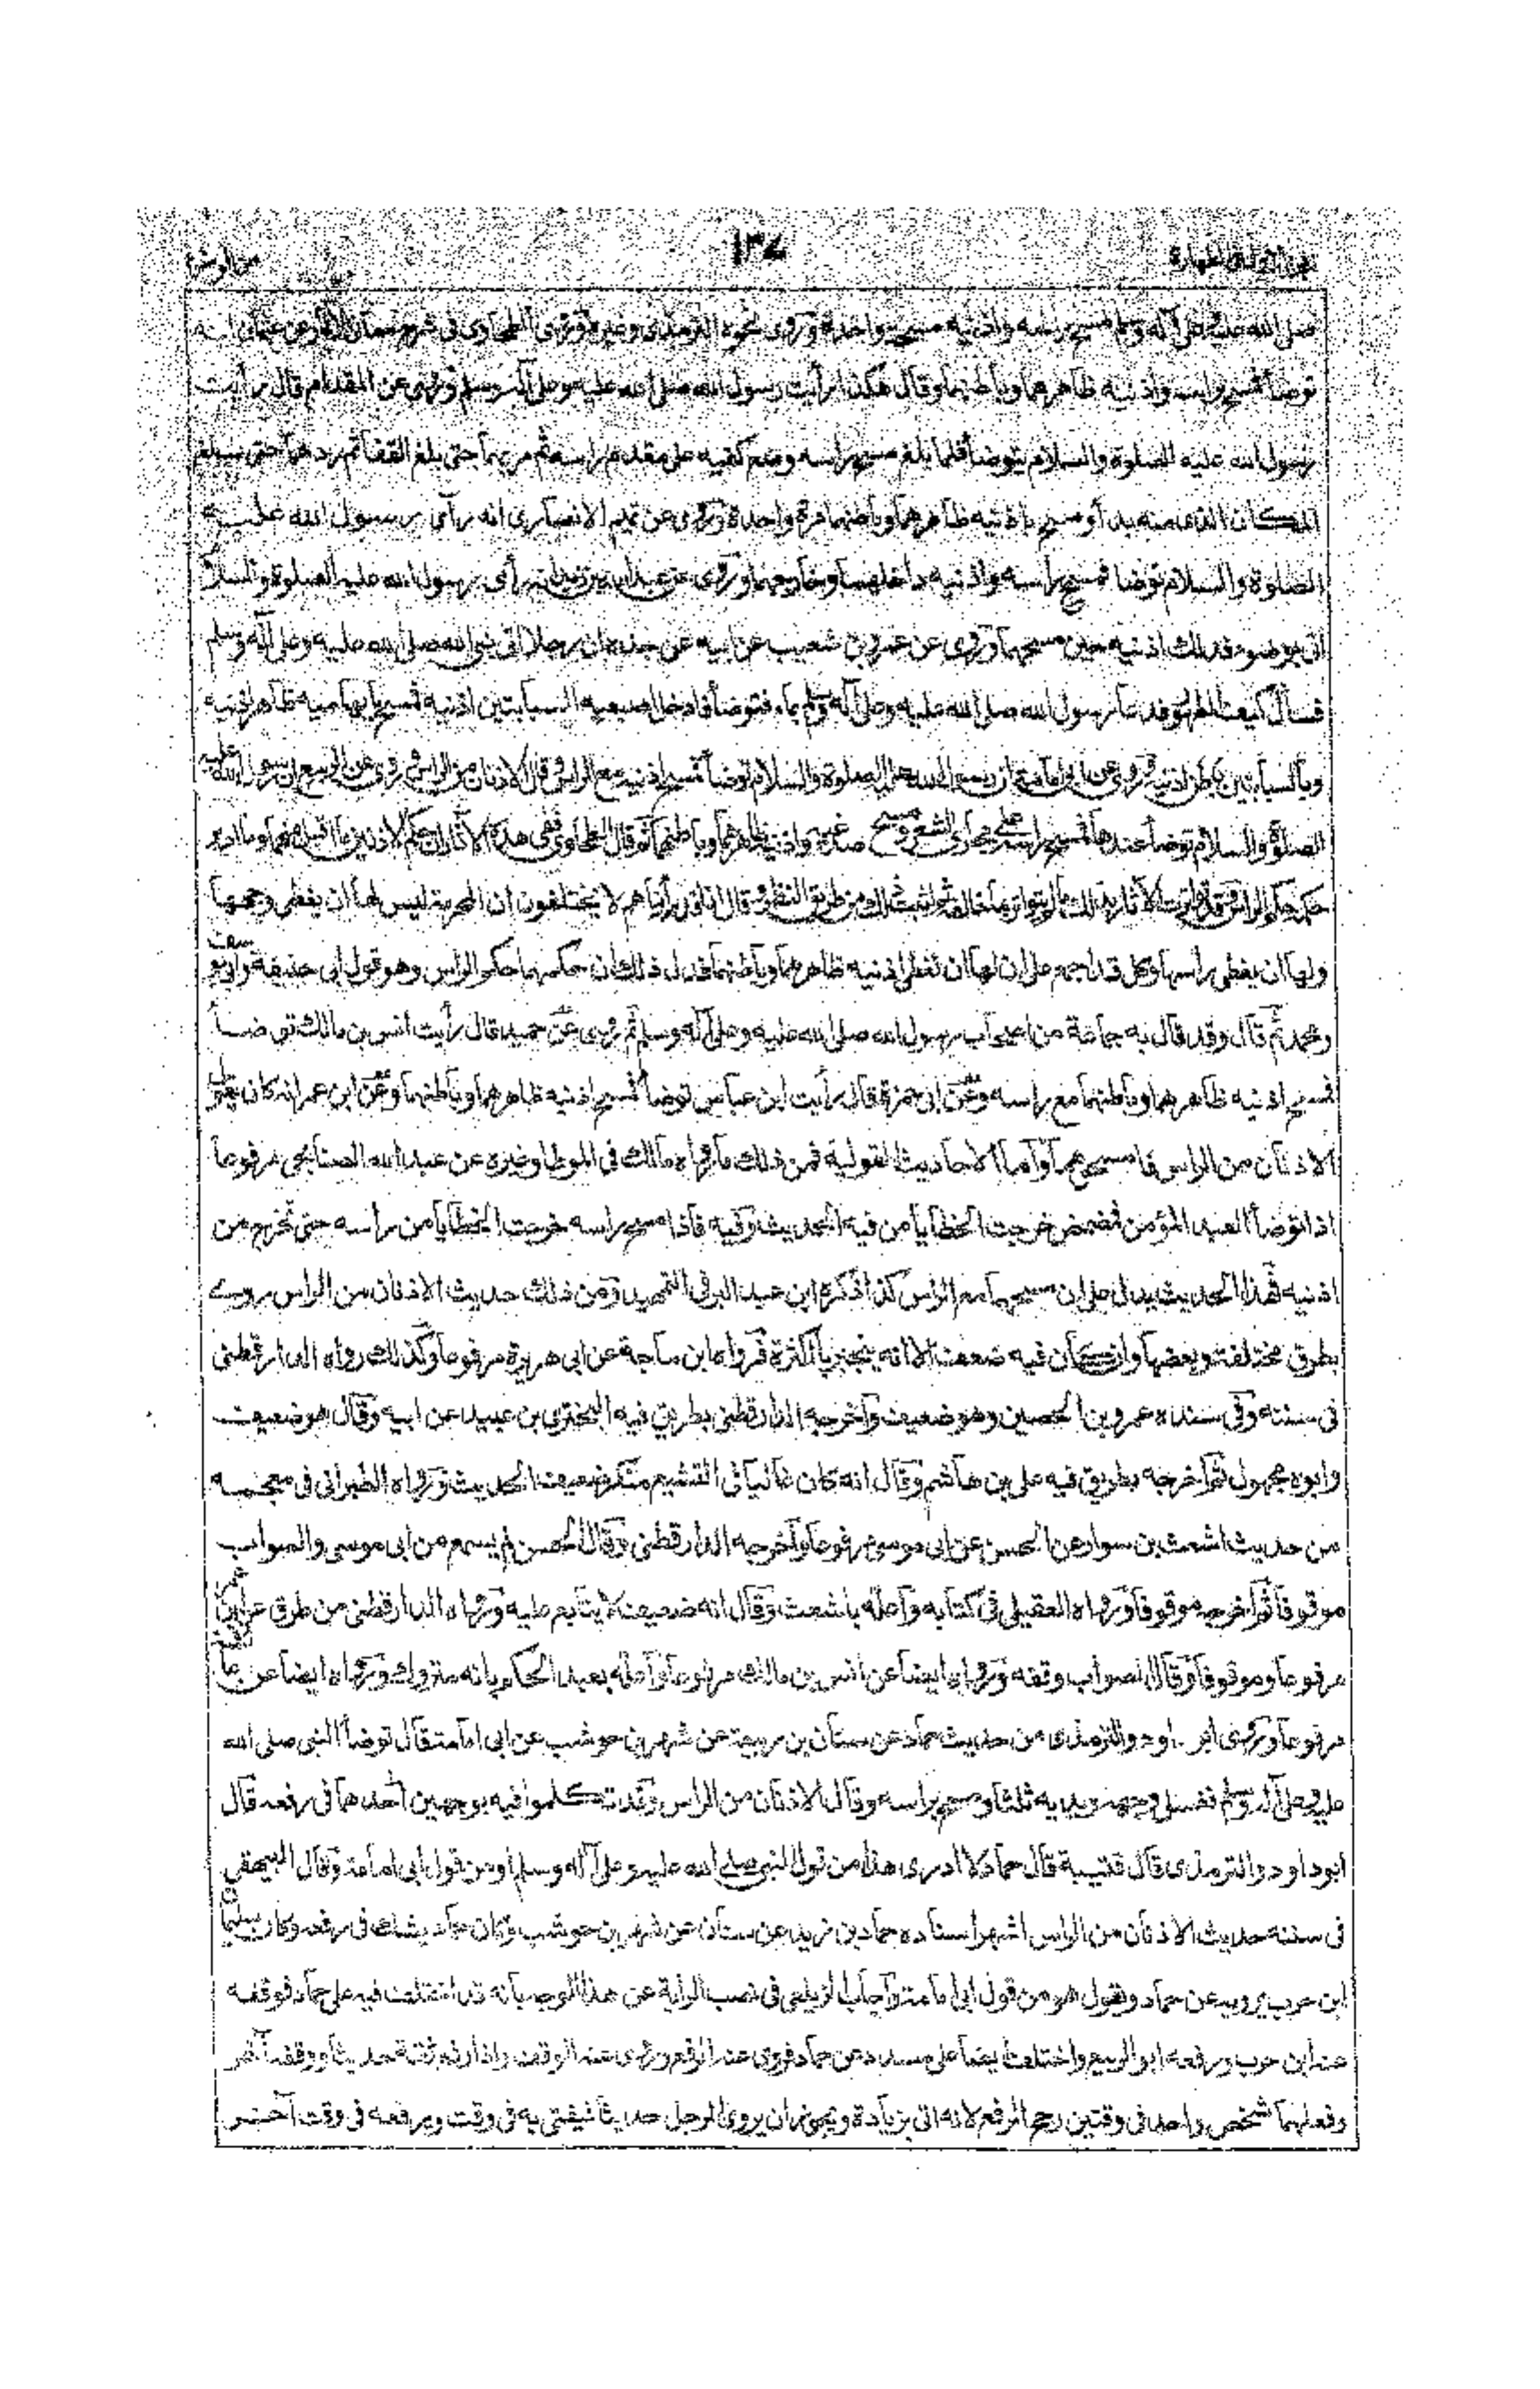 ١٣٤
صلى الله عليه وعلى آله وسلم مسح برأسه واذنيه مسحة واحدة وروى نحوه الترمذي وغيره وروى الطحاوى فى شرح معانى الآثار عن عثمان انه
توضأ فمسح براسه واذنيه ظاهرهما وباطنهما وقال هكذا رأيت رسول الله صلى الله عليه وعلى آله وسلم وروى عن المقدام قال رأيت
رسول الله عليه الصلوة والسلام يتوضأ فلما بلغ مسح راسه وضع كفيه على مقدم راسه ثم مر بهما حتى بلغ القفا ثم ردهما حتى بلغ
المكان الذى منه بدأ ومسح باذنيه ظاهرهما وباطنهما مرة واحدة وروى عن تميم الانصارى انه رأى رسول الله عليه
الصلوة والسلام توضا فمسح راسه واذنيه داخلهما وخارجهما وروى عن عبد الله بن زيد انه رأى رسول الله عليه الصلوة والسلام
اتى بوضوء فدلك اذنيه حين مسحهما وروى عن عمرو بن شعيب عن ابيه عن جده ان رجلا اتى نبى الله صلى الله عليه وعلى آله وسلم
فسأل كيف الطهور فدعا رسول الله صلى الله عليه وعلى آله وسلم بماء فتوضأ فادخل اصبعيه السبابتين اذنيه فمسح بابهاميه ظاهر اذنيه
وبالسبابتين باطن اذنيه وروى عن ابى امامة ان رسول الله عليه الصلوة والسلام توضأ فمسح اذنيه مع الراس وقال الاذنان من الراس ثم روى عن الربيع ان رسول الله عليه
الصلوة والسلام توضأ عندها فمسح راسه على مجارى الشعر ومسح صدغيه واذنيه ظاهرهما وباطنهما ثم قال الطحاوى ففى هذه الآثار ان حكم الاذنين ما اقبل منهما وما ادبر
حكمه حكم الراس وقد تواترت الآثار بذلك ما لم يتواتر بما خالفه ثم اثبت ذلك من طريق النظر وقال انا قد رأيناهم لا يختلفون ان المحرمة ليس لها ان يغطى وجهها
ولها ان يغطى راسها وكل قد اجمع على ان لها ان تغطى اذنيه ظاهرهما وباطنهما فدل ذلك ان حكمهما حكم الراس وهو قول ابى حنيفة وابى يوسف
ومحمد ثم قال وقد قال به جماعة من اصحاب رسول الله صلى الله عليه وعلى آله وسلم ثم روى عن حميد قال رأيت انس بن مالك توضأ
فمسح اذنيه ظاهرهما وباطنهما مع راسه وعن ابى حمزة قال رأيت ابن عباس توضأ فمسح اذنيه ظاهرهما وباطنهما وعن ابن عمر انه كان يقول
الاذنان من الراس فامسحوهما وأما الاحاديث القولية فمن ذلك ما رواه مالك فى الموطا وغيره عن عبد الله الصنابحى مرفوعا
اذا توضأ العبد المؤمن فمضمض خرجت الخطايا من فيه الحديث وفيه فاذا مسح راسه خرجت الخطايا من رأسه حتى تخرج من
اذنيه فهذا الحديث يدل على ان مسحهما مع الراس كذا ذكره ابن عبد البر فى التمهيد ومن ذلك حديث الاذنان من الراس روے
بطرق مختلفة وبعضها وان كان فيه ضعف الا انه ينجبر بالكثرة فرواه ابن ماجة عن ابى هريرة مرفوعا وكذلك رواه الدارقطنى
فى سننه وفى سنده عمرو بن الحصين وهو ضعيف وأخرجه الدارقطنى بطريق فيه البخترى بن عبيد عن ابيه وقال هو ضعيف
وابوه مجهول ثم اخرجه بطريق فيه على بن هاشم وقال انه كان غاليا فى التشيع منكر ضعيف الحديث ورواه الطبرانى فى معجمه
من حديث اشعث بن سوار عن الحسن عن ابى موسى مرفوعا وأخرجه الدارقطنى وقال الحسن لم يسمع من ابى موسى والصواب
موقوفا ثم اخرجه موقوفا ورواه العقيلى فى كتابه وأعله باشعث وقال انه ضعيف لا يتابع عليه ورواه الدارقطنى من طرق عن ابن عمر
مرفوعا وموقوفا وقال الصواب وقفه ورواه ايضا عن انس بن مالك مرفوعا وأعله بعبد الحكم بانه متروك ورواه ايضا عن عائشة
مرفوعا وروى ابو داود والترمذى من حديث حماد عن سنان بن ربيعة عن شهر بن حوشب عن ابى امامة قال توضأ النبى صلى الله
عليه وعلى آله وسلم فغسل وجهه ويديه ثلثا ومسح براسه وقال الاذنان من الراس وقد تكلموا فيه بوجهين أحدهما فى رفعه قال
ابو داود والترمذى قال قتيبة قال حماد لا ادرى هذا من قول النبى صلى الله عليه وعلى آله وسلم او من قول ابى امامة وقال البيهقى
فى سننه حديث الاذنان من الراس اشهر اسناده حماد بن زيد عن سنان عن شهر بن حوشب وكان حماد يشك فى رفعه وكان سليمان
ابن حرب يرويه عن حماد ويقول هو من قول ابى امامة وأجاب الزيلعى فى نصب الراية عن هذا الوجه بانه قد اختلف فيه على حماد فوقفه
عنه ابن حرب ورفعه ابو الربيع واختلف ايضا على مسدد عن حماد فروى عنه الرفع وروى عنه الوقف واذا رفع ثقة حديثا ووقفه آخر
وفعلهما شخص واحد فى وقتين رجح الرفع لانه اتى بزيادة ويجوز ان يروى الرجل حديثا فيفتى به فى وقت ويرفعه فى وقت آخر